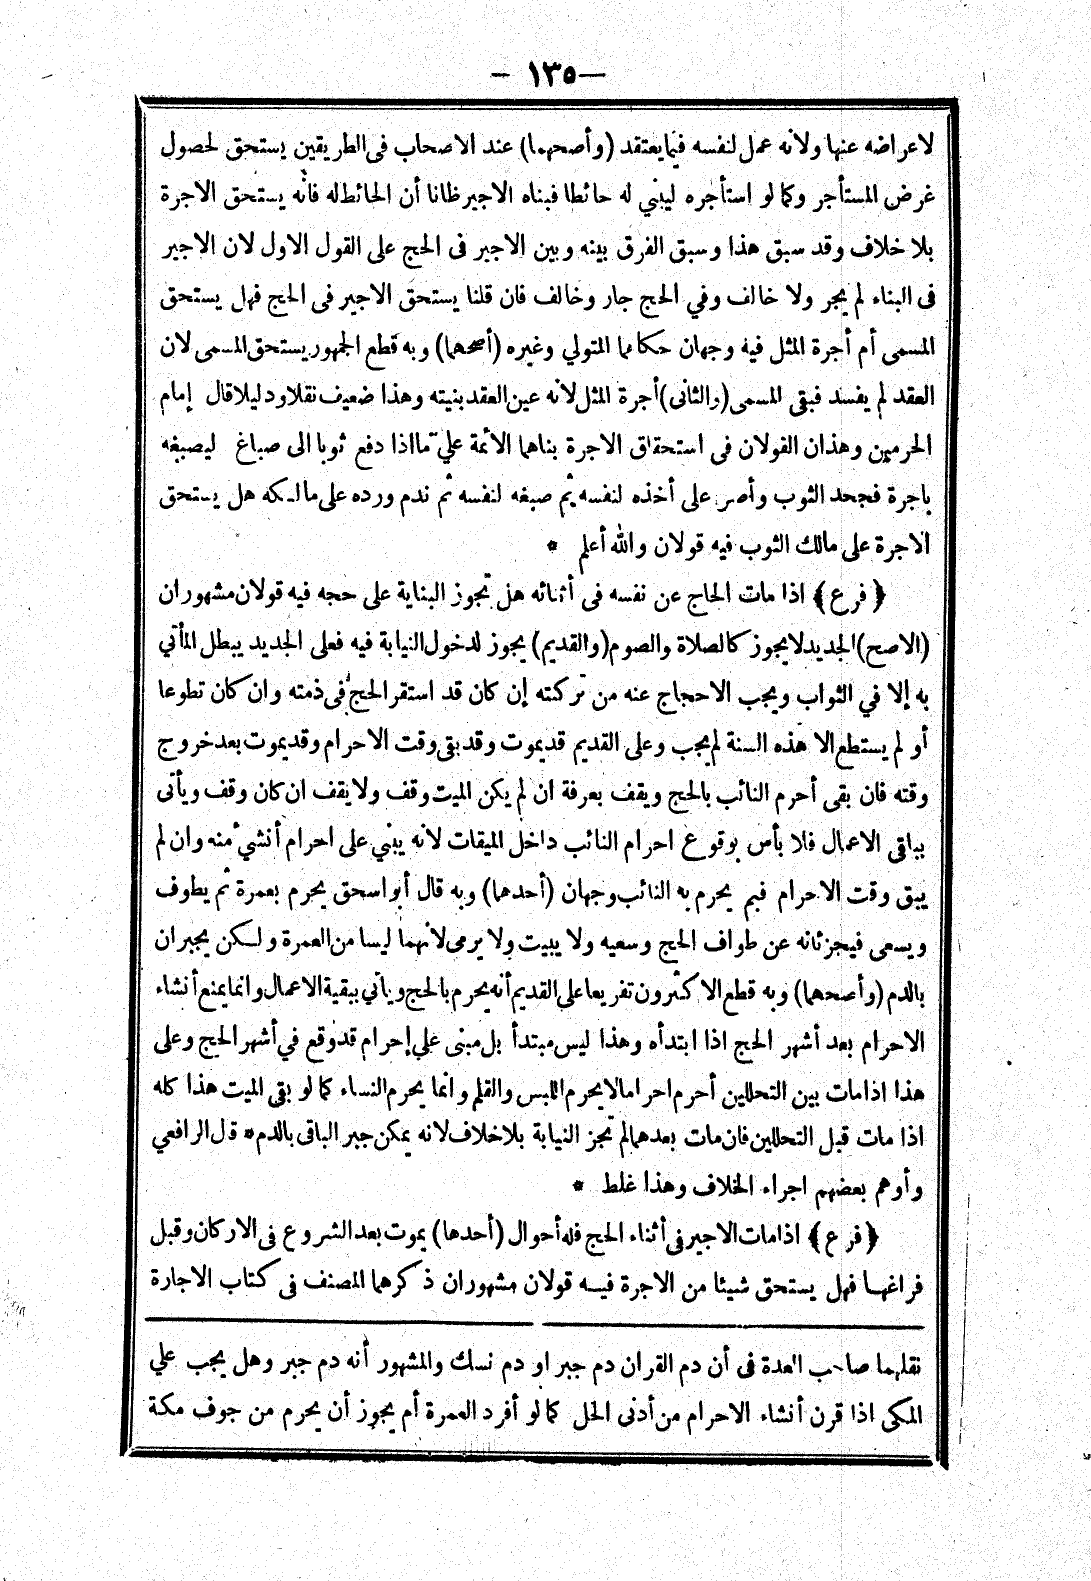 — ١٣٥ —
لاعراضه عنها ولانه عمل لنفسه فيما يعتقد (وأصحهما) عند الاصحاب فى الطريقين يستحق لحصول
غرض المستأجر وكما لو استأجره ليبني له حائطا فبناه الاجير ظانا أن الحائط له فانه يستحق الاجرة
بلا خلاف وقد سبق هذا وسبق الفرق بينه وبين الاجير فى الحج على القول الاول لان الاجير
فى البناء لم يجر ولا خالف وفي الحج جار وخالف فان قلنا يستحق الاجير فى الحج فهل يستحق
المسمى أم أجرة المثل فيه وجهان حكاهما المتولي وغيره (أصحهما) وبه قطع الجمهور يستحق المسمى لان
العقد لم يفسد فبقى المسمى (والثانى) أجرة المثل لانه عين العقد بنيته وهذا ضعيف نقلا ودليلا قال إمام
الحرمين وهذان القولان فى استحقاق الاجرة بناهما الأئمة علي ما اذا دفع ثوبا الى صباغ ليصبغه
باجرة فجحد الثوب وأصر على أخذه لنفسه ثم صبغه لنفسه ثم ندم ورده على مالكه هل يستحق
الاجرة على مالك الثوب فيه قولان والله أعلم *
﴿فرع﴾ اذا مات الحاج عن نفسه فى أثنائه هل تجوز البناية على حجه فيه قولان مشهوران
(الاصح) الجديد لا يجوز كالصلاة والصوم (والقديم) يجوز لدخول النيابة فيه فعلى الجديد يبطل المأتي
به إلا في الثواب ويجب الاحجاج عنه من تركته إن كان قد استقر الحج فى ذمته وان كان تطوعا
أو لم يستطع الا هذه السنة لم يجب وعلى القديم قد يموت وقد بقى وقت الاحرام وقد يموت بعد خروج
وقته فان بقى أحرم النائب بالحج ويقف بعرفة ان لم يكن الميت وقف ولا يقف ان كان وقف ويأتى
بباقى الاعمال فلا بأس بوقوع احرام النائب داخل الميقات لانه يبني على احرام أنشئ منه وان لم
يبق وقت الاحرام فبم يحرم به النائب وجهان (أحدهما) وبه قال أبو اسحق يحرم بعمرة ثم يطوف
ويسعى فيجزئانه عن طواف الحج وسعيه ولا يبيت ولا يرمى لانهما ليسا من العمرة ولكن يجبران
بالدم (وأصحهما) وبه قطع الاكثرون تفريعا على القديم أنه يحرم بالحج ويأتي ببقية الاعمال وانما يمنع أنشاء
الاحرام بعد أشهر الحج اذا ابتدأه وهذا ليس مبتدأ بل مبنى علي إحرام قد وقع في أشهر الحج وعلى
هذا اذا مات بين التحللين أحرم احراما لا يحرم اللبس والقلم وانما يحرم النساء كما لو بقى الميت هذا كله
اذا مات قبل التحللين فان مات بعدهما لم تجز النيابة بلا خلاف لانه يمكن جبر الباقى بالدم * قال الرافعي
وأوهم بعضهم اجراء الخلاف وهذا غلط *
﴿فرع﴾ اذا مات الاجير فى أثناء الحج فله أحوال (أحدها) يموت بعد الشروع فى الاركان وقبل
فراغها فهل يستحق شيئا من الاجرة فيه قولان مشهوران ذكرهما المصنف فى كتاب الاجارة
نقلهما صاحب العدة فى أن دم القران دم جبر او دم نسك والمشهور أنه دم جبر وهل يجب علي
المكى اذا قرن أنشاء الاحرام من أدنى الحل كما لو أفرد العمرة أم يجوز أن يحرم من جوف مكة